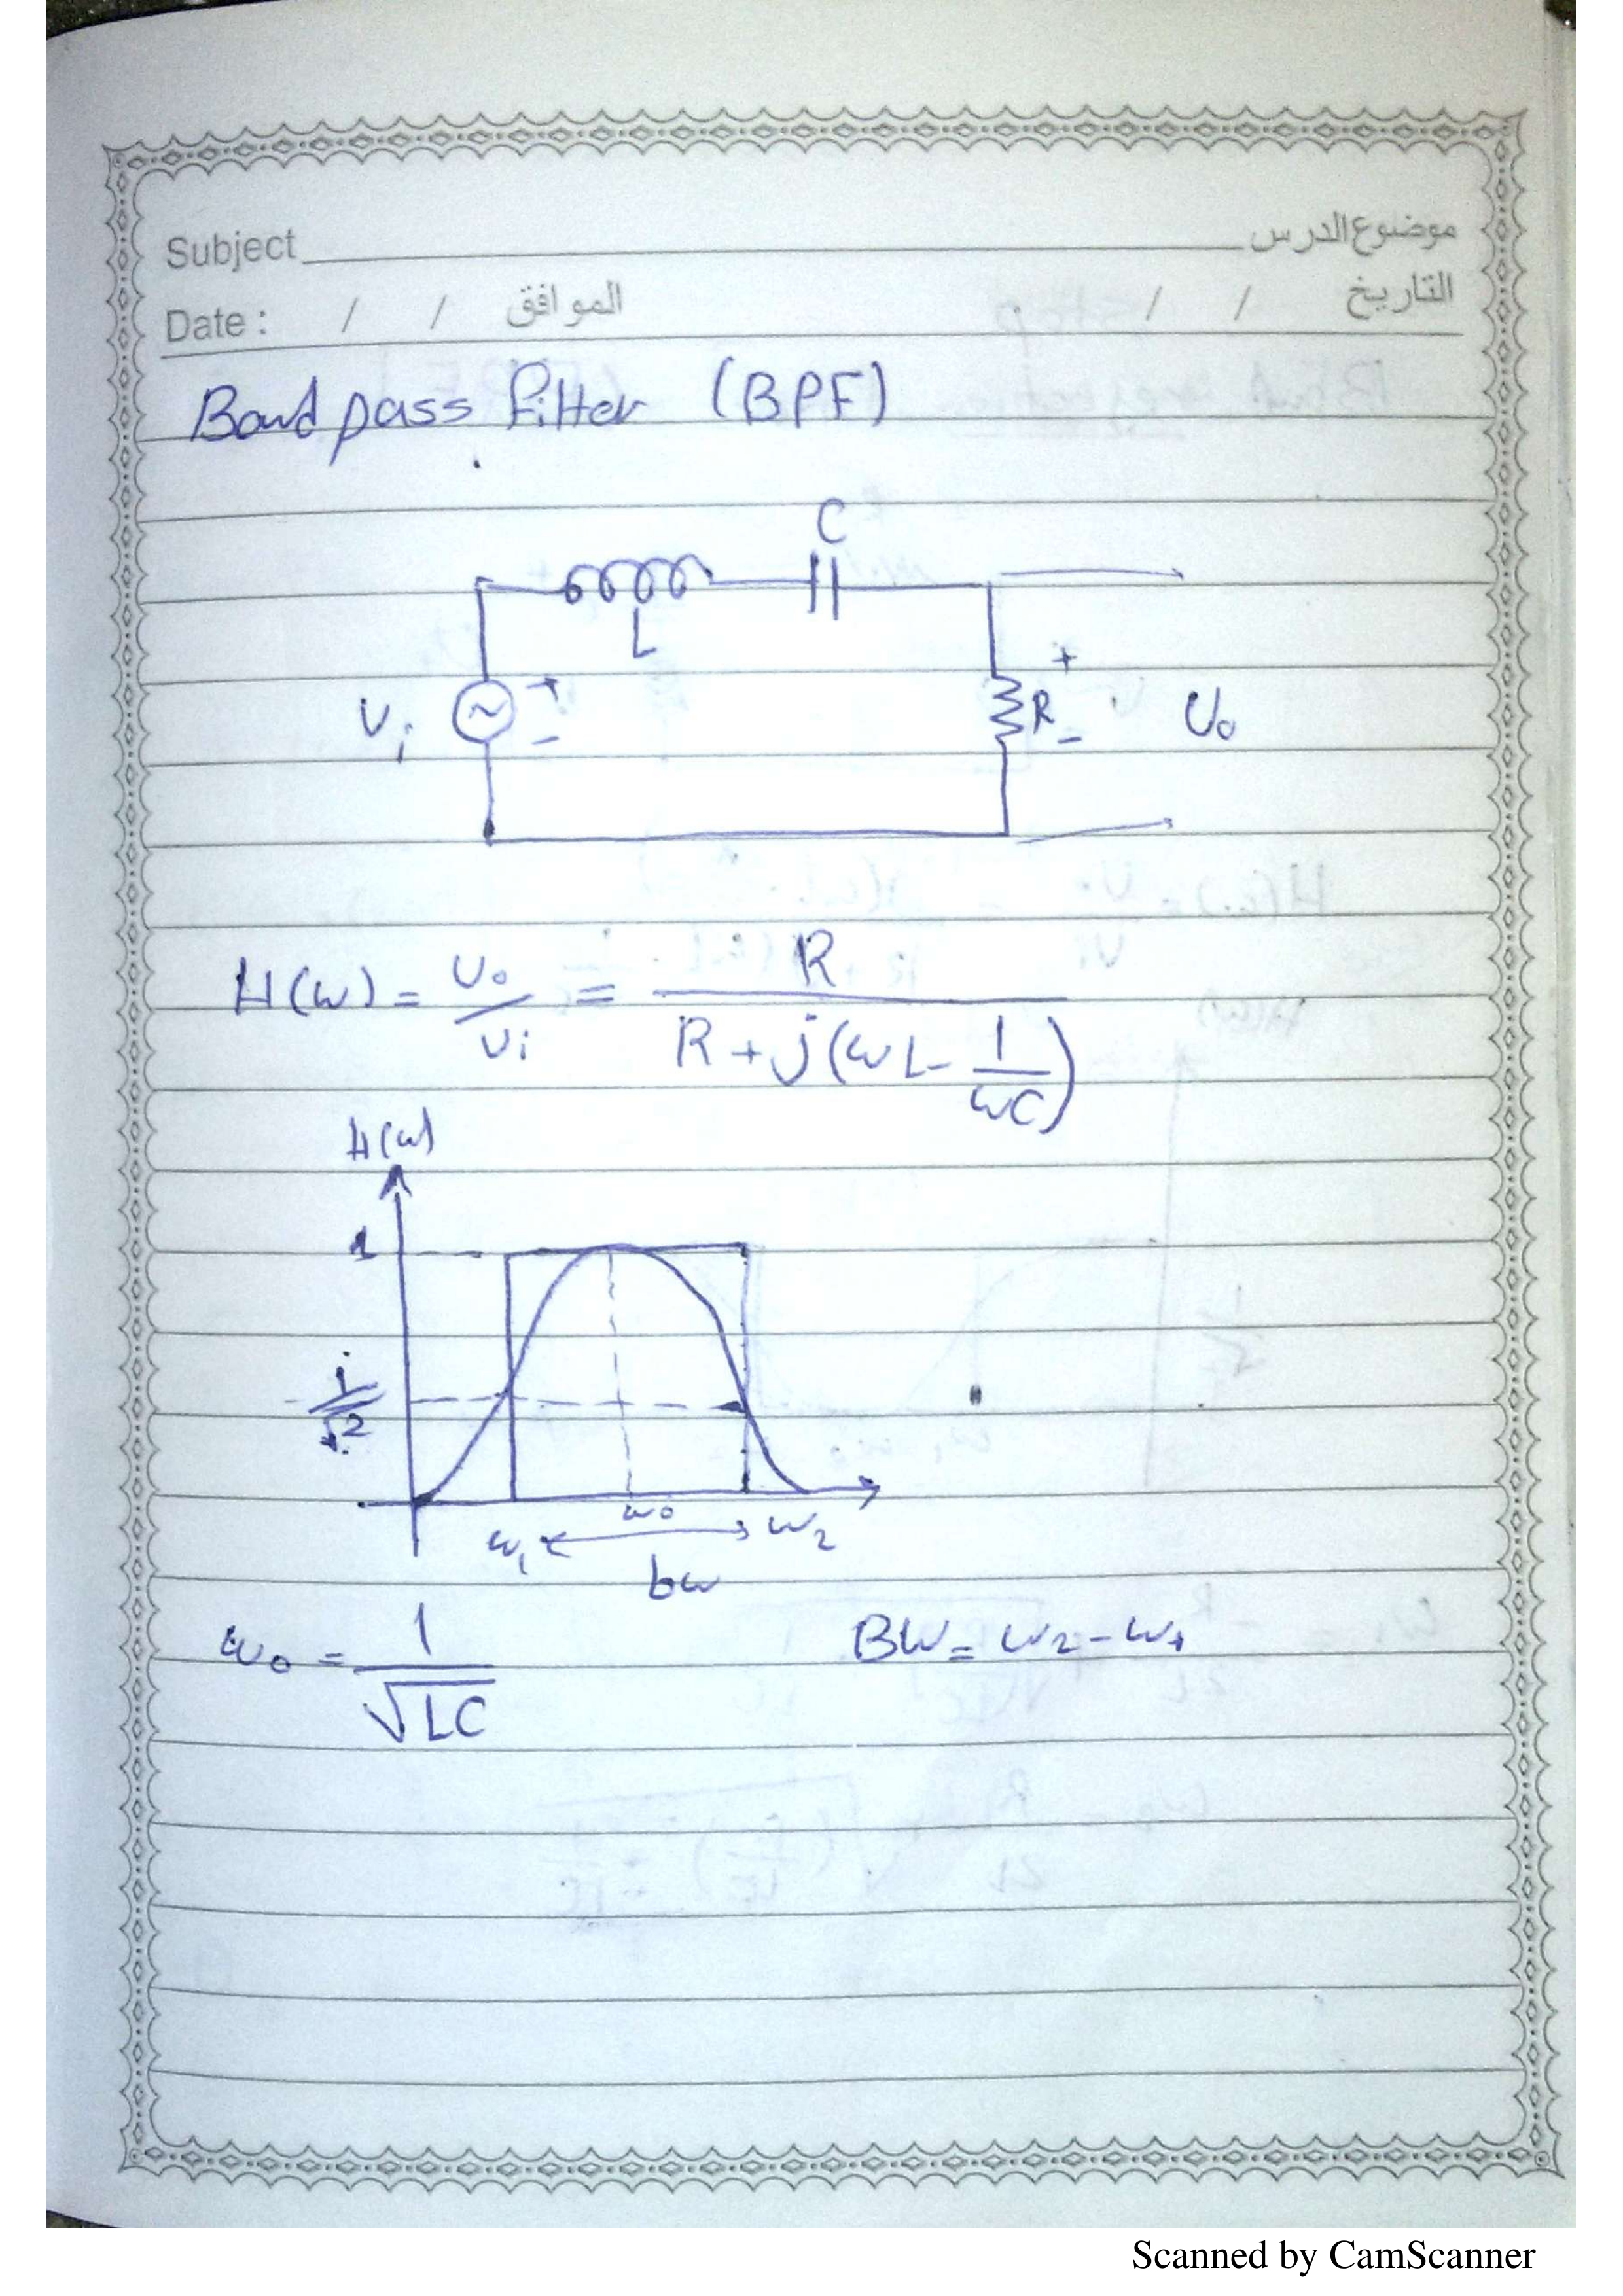 Subject موضوع الدرس
Date : / / الموافق / / التاريخ
Band pass Filter (BPF)
C
L
Vi + - R + - Vo
H(ω) = Vo/Vi = R / (R + j(ωL - 1/ωC))
H(ω)
1
1/√2
ω0
ω1 ω2
bw
ω0 = 1/√LC BW = ω2 - ω1
Scanned by CamScanner